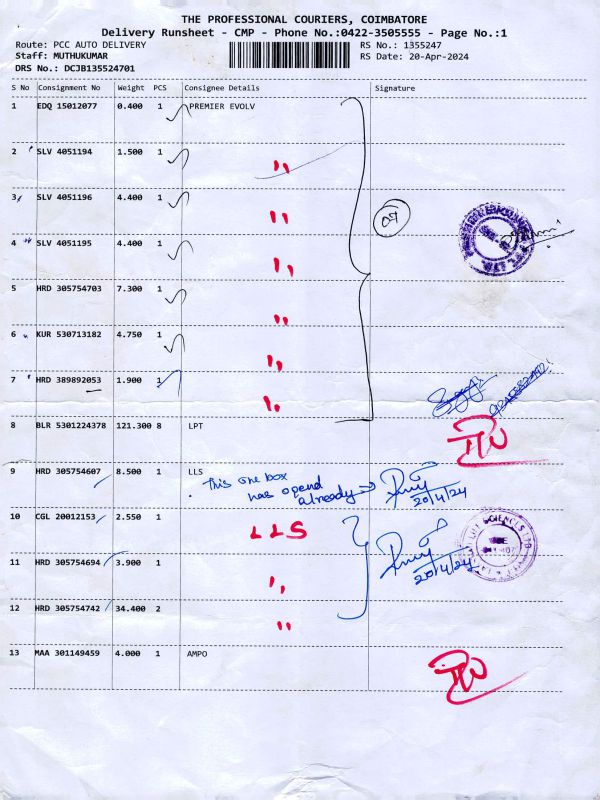 THE PROFESSIONAL COURIERS, COIMBATORE
Delivery Runsheet - CMP - Phone No.:0422-3505555 - Page No.:1
Route: PCC AUTO DELIVERY RS No.: 1355247
Staff: MUTHUKUMAR RS Date: 20-Apr-2024
DRS No.: DCJB135524701
S No Consignment No Weight PCS Consignee Details Signature
1 EDQ 15012077 0.400 1 PREMIER EVOLV
2 SLV 4051194 1.500 1 ,,
3 SLV 4051196 4.400 1 ,,
07
4 SLV 4051195 4.400 1 ,,
5 HRD 305754703 7.300 1 ,,
6 KUR 530713182 4.750 1 ,,
7 HRD 389892053 1.900 1 ,,
8 BLR 5301224378 121.300 8 LPT
9 HRD 305754607 8.500 1 LLS
This one box
has opend
already
20/4/24
10 CGL 20012153 2.550 1 LLS
11 HRD 305754694 3.900 1 ,,
20/4/24
12 HRD 305754742 34.400 2 ,,
13 MAA 301149459 4.000 1 AMPO